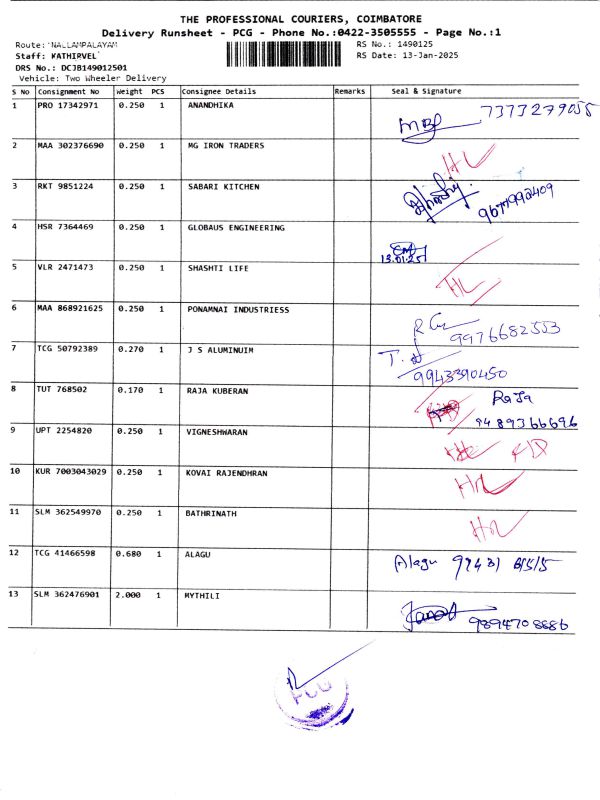 THE PROFESSIONAL COURIERS, COIMBATORE
Delivery Runsheet - PCG - Phone No.:0422-3505555 - Page No.:1
Route: NALLAMPALAYAM RS No.: 1490125
Staff: KATHIRVEL RS Date: 13-Jan-2025
DRS No.: DCJB149012501
Vehicle: Two Wheeler Delivery
S No Consignment No Weight PCS Consignee Details Remarks Seal & Signature
1 PRO 17342971 0.250 1 ANANDHIKA 7373279055
2 MAA 302376690 0.250 1 MG IRON TRADERS
3 RKT 9851224 0.250 1 SABARI KITCHEN 9677992409
4 HSR 7364469 0.250 1 GLOBAUS ENGINEERING 13.01.25
5 VLR 2471473 0.250 1 SHASHTI LIFE
6 MAA 868921625 0.250 1 PONAMNAI INDUSTRIESS 9976682553
7 TCG 50792389 0.270 1 J S ALUMINUIM 9943390450
8 TUT 768502 0.170 1 RAJA KUBERAN Raja 9489366696
9 UPT 2254820 0.250 1 VIGNESHWARAN
10 KUR 7003043029 0.250 1 KOVAI RAJENDHRAN
11 SLM 362549970 0.250 1 BATHRINATH
12 TCG 41466598 0.680 1 ALAGU Alagu
13 SLM 362476901 2.000 1 MYTHILI 9894708886